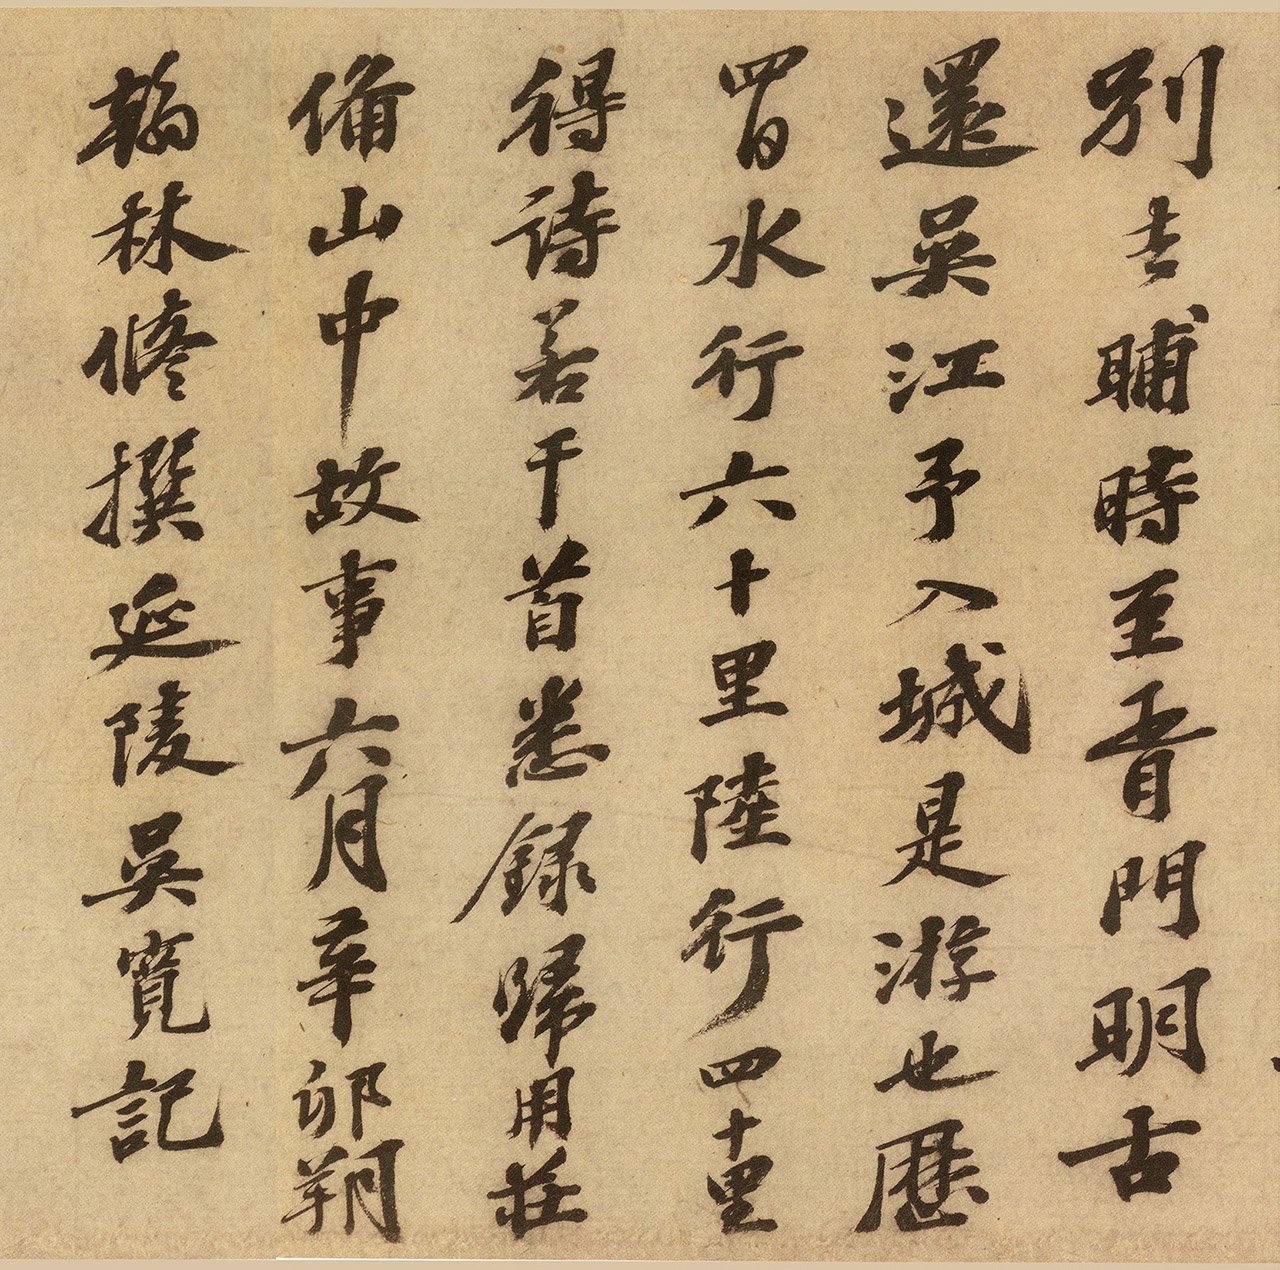 別去晡時至胥門明古
還吳江予入城是游也歷
四日水行六十里陸行四十里
得詩若干首悉録歸用莊
備山中故事六月辛卯朔
翰林脩撰延陵吳寬記